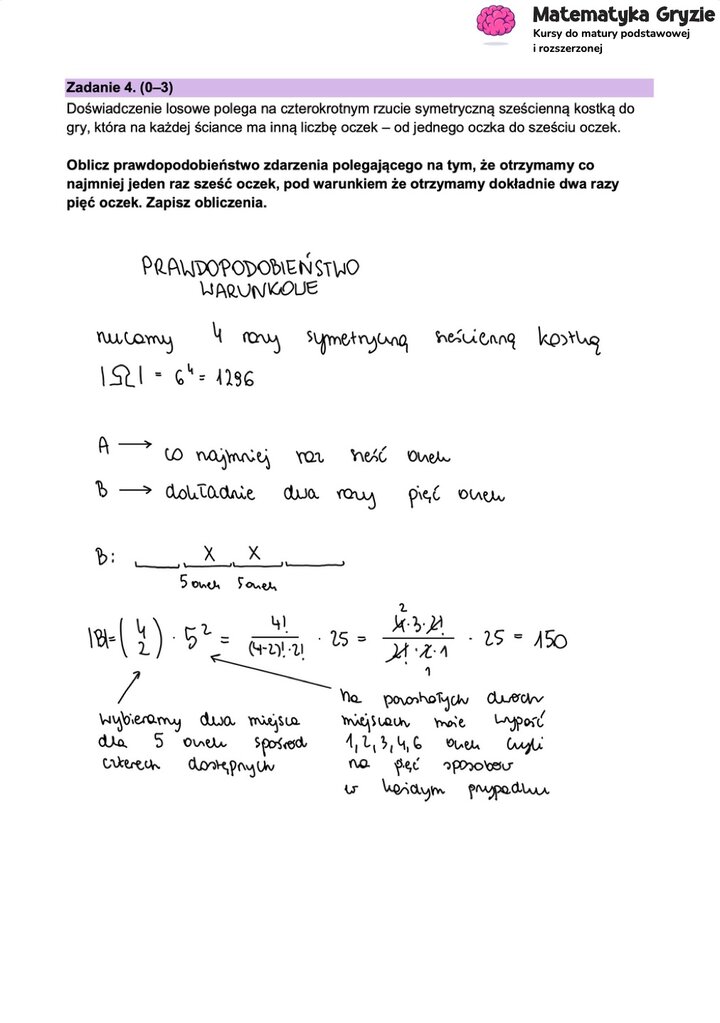 Matematyka Gryzie
Kursy do matury podstawowej
i rozszerzonej
Zadanie 4. (0–3)
Doświadczenie losowe polega na czterokrotnym rzucie symetryczną sześcienną kostką do
gry, która na każdej ściance ma inną liczbę oczek – od jednego oczka do sześciu oczek.
Oblicz prawdopodobieństwo zdarzenia polegającego na tym, że otrzymamy co
najmniej jeden raz sześć oczek, pod warunkiem że otrzymamy dokładnie dwa razy
pięć oczek. Zapisz obliczenia.
PRAWDOPODOBIEŃSTWO
WARUNKOWE
rzucamy 4 razy symetryczną sześcienną kostką
|Ω| = 6⁴ = 1296
A → co najmniej raz sześć oczek
B → dokładnie dwa razy pięć oczek
B: X X
5 oczek 5 oczek
|B| = (4 2) · 5² = 4!/(4-2)!·2! · 25 = 4·3·2!/2!·2·1 · 25 = 150
2
1
wybieramy dwa miejsca
dla 5 oczek spośród
czterech dostępnych
na pozostałych dwóch
miejscach może wypaść
1, 2, 3, 4, 6 oczek czyli
na pięć sposobów
w każdym przypadku